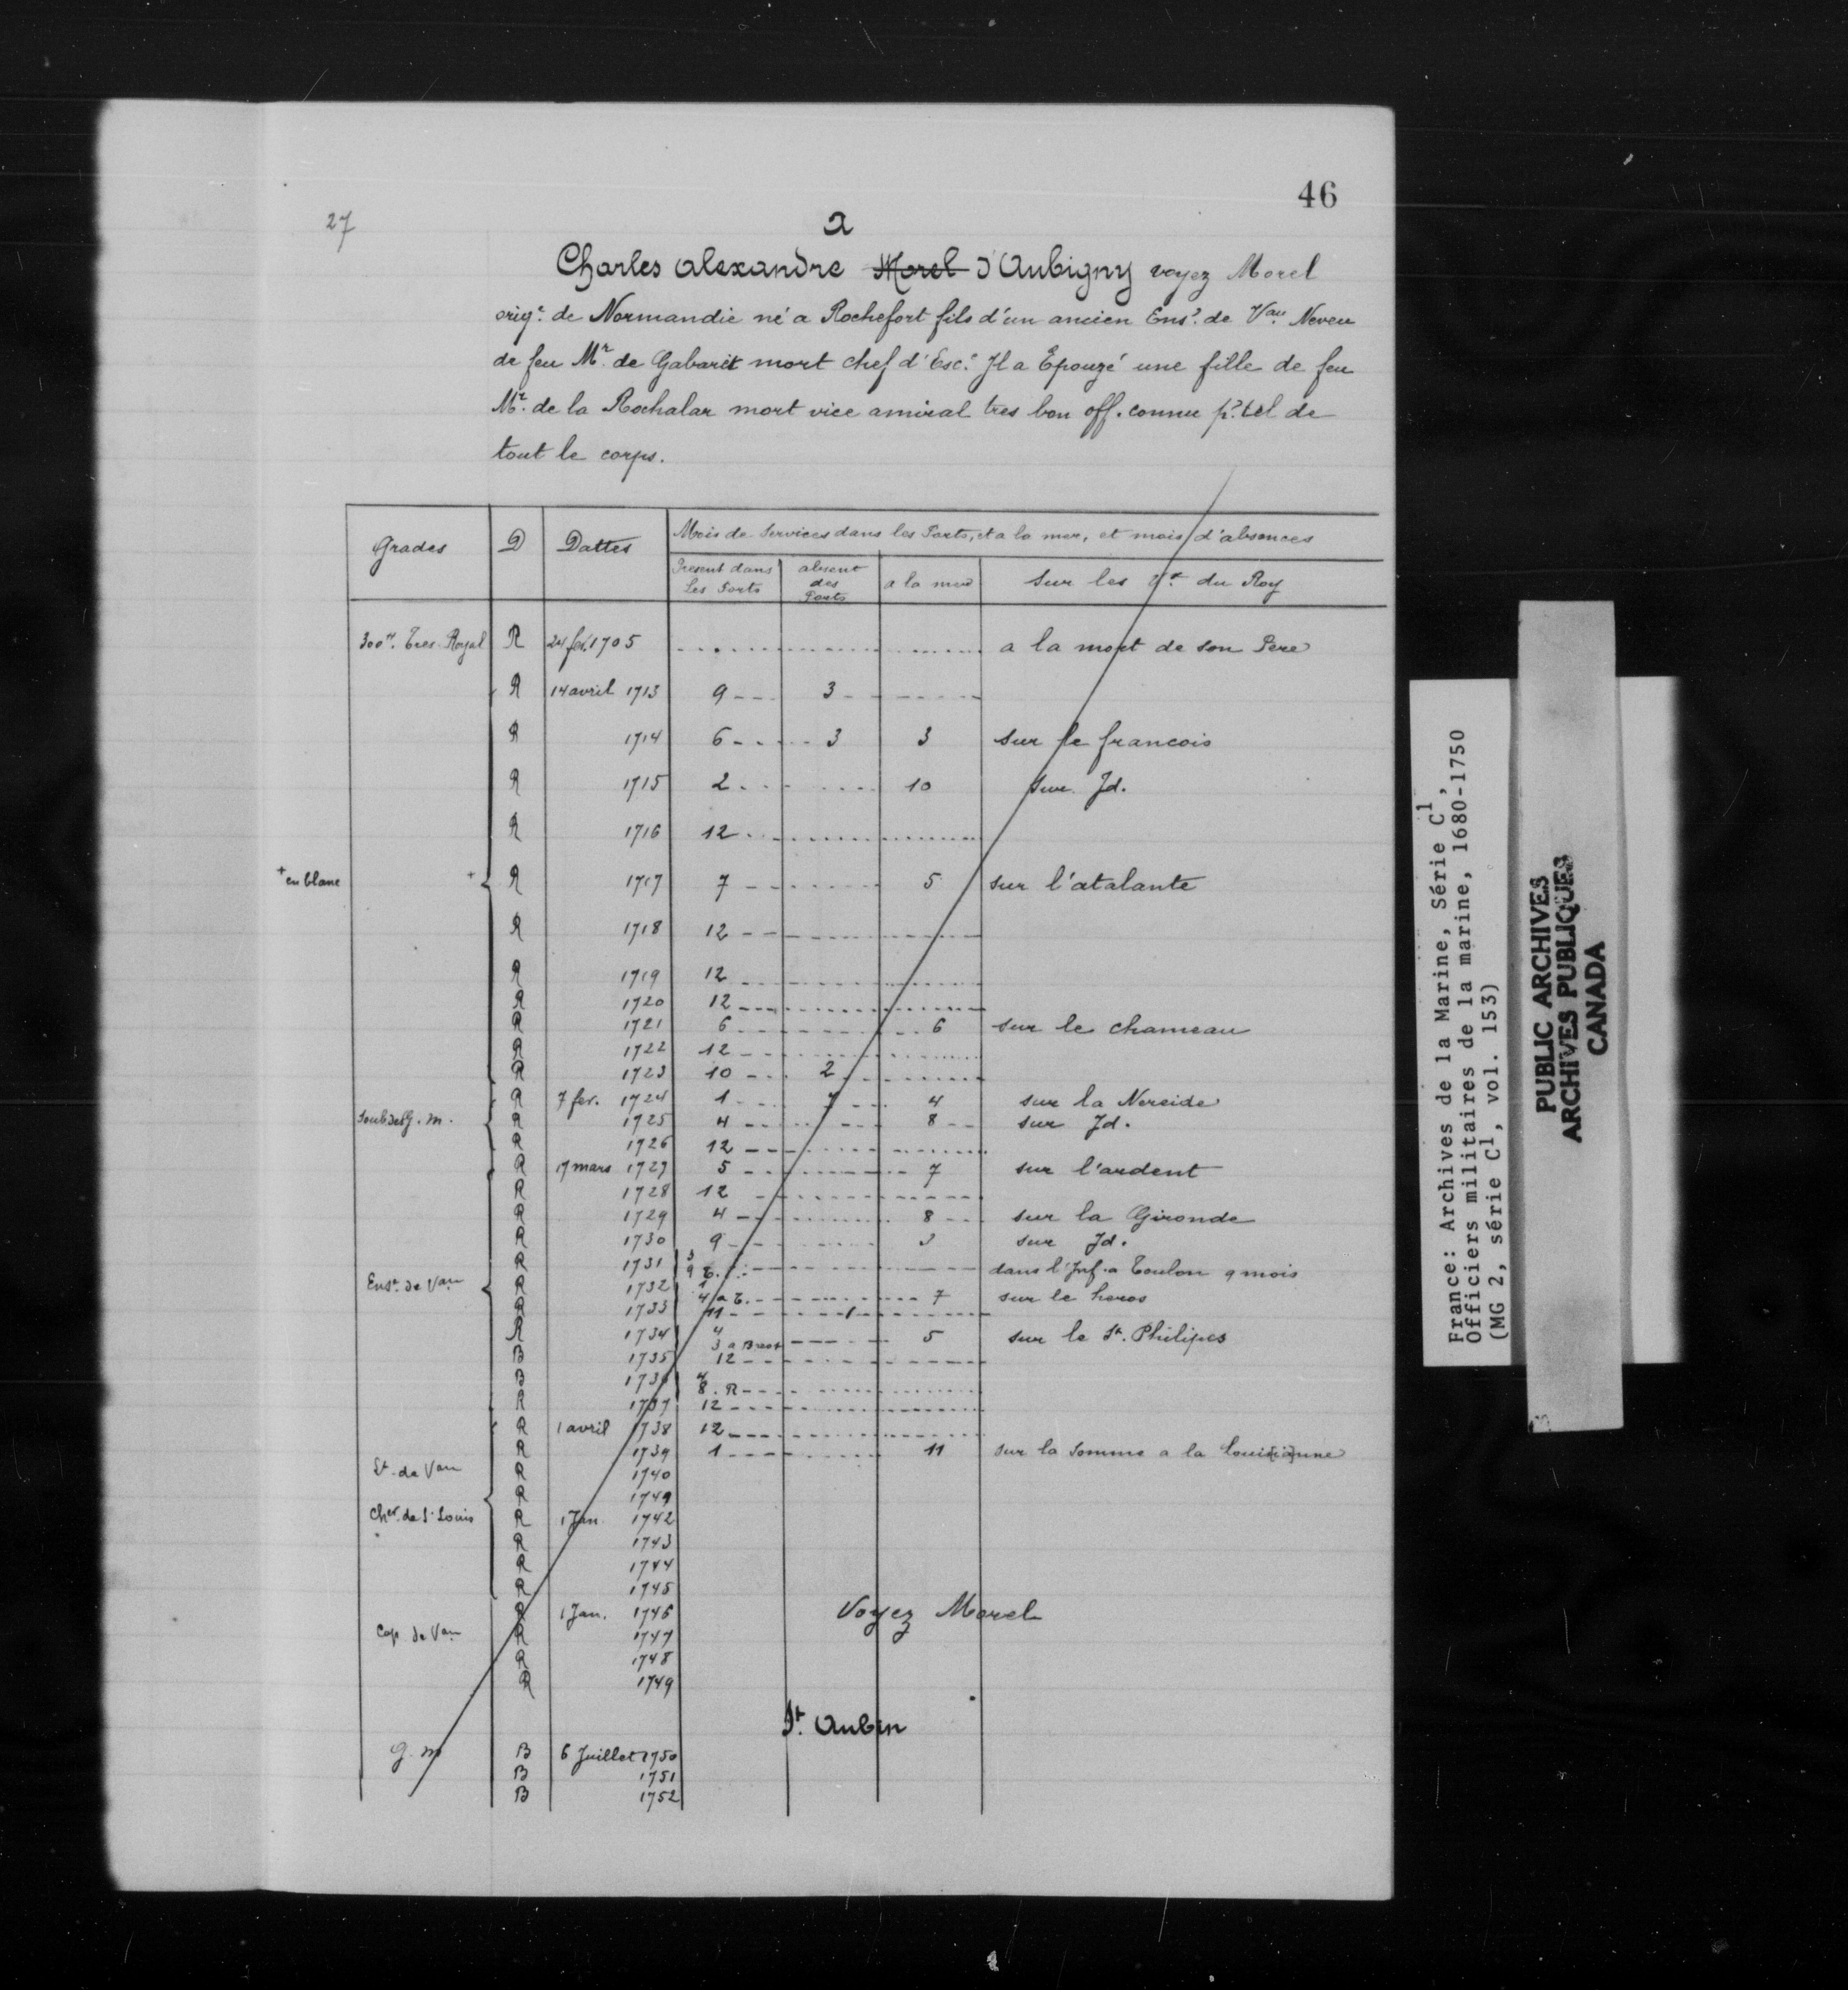 46
27
a
Charles alexandre Morel d'Aubigny voyez Morel
orig.e de Normandie né a Rochefort fils d'un ancien Ens.e de Vau Neveu
de feu Mr. de Gabaret mort chef d'Esc.e Jl a Epouzé une fille de feu
Mr. de la Rochalar mort vice amiral tres bon off. connu p.r tel de
tout le corps.
Mois de Services dans les Ports, et a la mer, et mois d'absences
Grades D Dattes
Present dans les Ports absent des Ports a la mer Sur les Vx du Roy
300tt. Tres. Royal R 24 fev. 1705 a la mort de son Pere
R 14 avril 1713 9 3
R 1714 6 3 3 sur le francois
R 1715 2 10 sur Jd.
R 1716 12
+ en blanc + R 1717 7 5 sur l'atalante
R 1718 12
R 1719 12
R 1720 12
R 1721 6 6 sur le chameau
R 1722 12
R 1723 10 2
R 7 fev. 1724 1 7 4 sur la Nereide
Soub. des G. m. R 1725 4 8 sur Jd.
R 1726 12
R 17 mars 1727 5 7 sur l'ardent
R 1728 12
R 1729 4 8 sur la Gironde
R 1730 9 3 sur Jd.
R 1731 3 9 T. dans l'Inf. a Toulon 9 mois
Ens.e de Vau R 1732 1 4 a T. 7 sur le heros
R 1733 11 1
R 1734 4 3 a Brest 5 sur le St. Philipes
B 1735 12
B 1736 4 8. R
R 1737 12
R 1 avril 1738 12
R 1739 1 11 sur la Somme a la Louisianne
Lt. de Vau R 1740
R 1749
Cher. de St Louis R 1 Jan. 1742
R 1743
R 1744
R 1745
R 1 Jan. 1746 Voyez Morel
Cap. de Vau R 1747
R 1748
R 1749
St. Aubin
G. m B 6 Juillet 1750
B 1751
B 1752
France: Archives de la Marine, Série C1,
Officiers militaires de la marine, 1680-1750
(MG 2, série C1, vol. 153)
PUBLIC ARCHIVES
ARCHIVES PUBLIQUES
CANADA